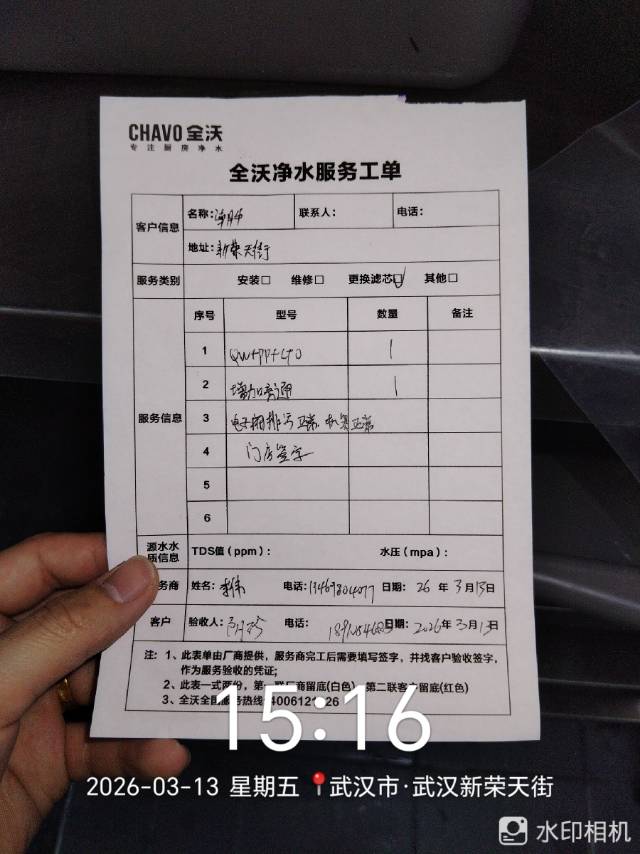 CHAVO 全沃
专注厨房净水
全沃净水服务工单
客户信息 名称: 联系人: 电话:
地址: 新荣天街
服务类别 安装□ 维修□ 更换滤芯☑ 其他□
服务信息 序号 型号 数量 备注
1 QW+PP+CTO 1
2 增加旁通 1
3 电子阀排污正常. 正常
4 门店签字
5
6
源水水质信息 TDS值(ppm): 水压(mpa):
务商 姓名: 李伟 电话: 日期: 26年3月13日
客户 验收人: 电话: 日期: 2026年3月13
注: 1、此表单由厂商提供,服务商完工后需要填写签字,并找客户验收签字,
作为服务验收的凭证;
2、此表一式两份,第一联厂商留底(白色) 第二联客户留底(红色)
3、全沃全国服务热线
15:16
2026-03-13 星期五 武汉市·武汉新荣天街
水印相机